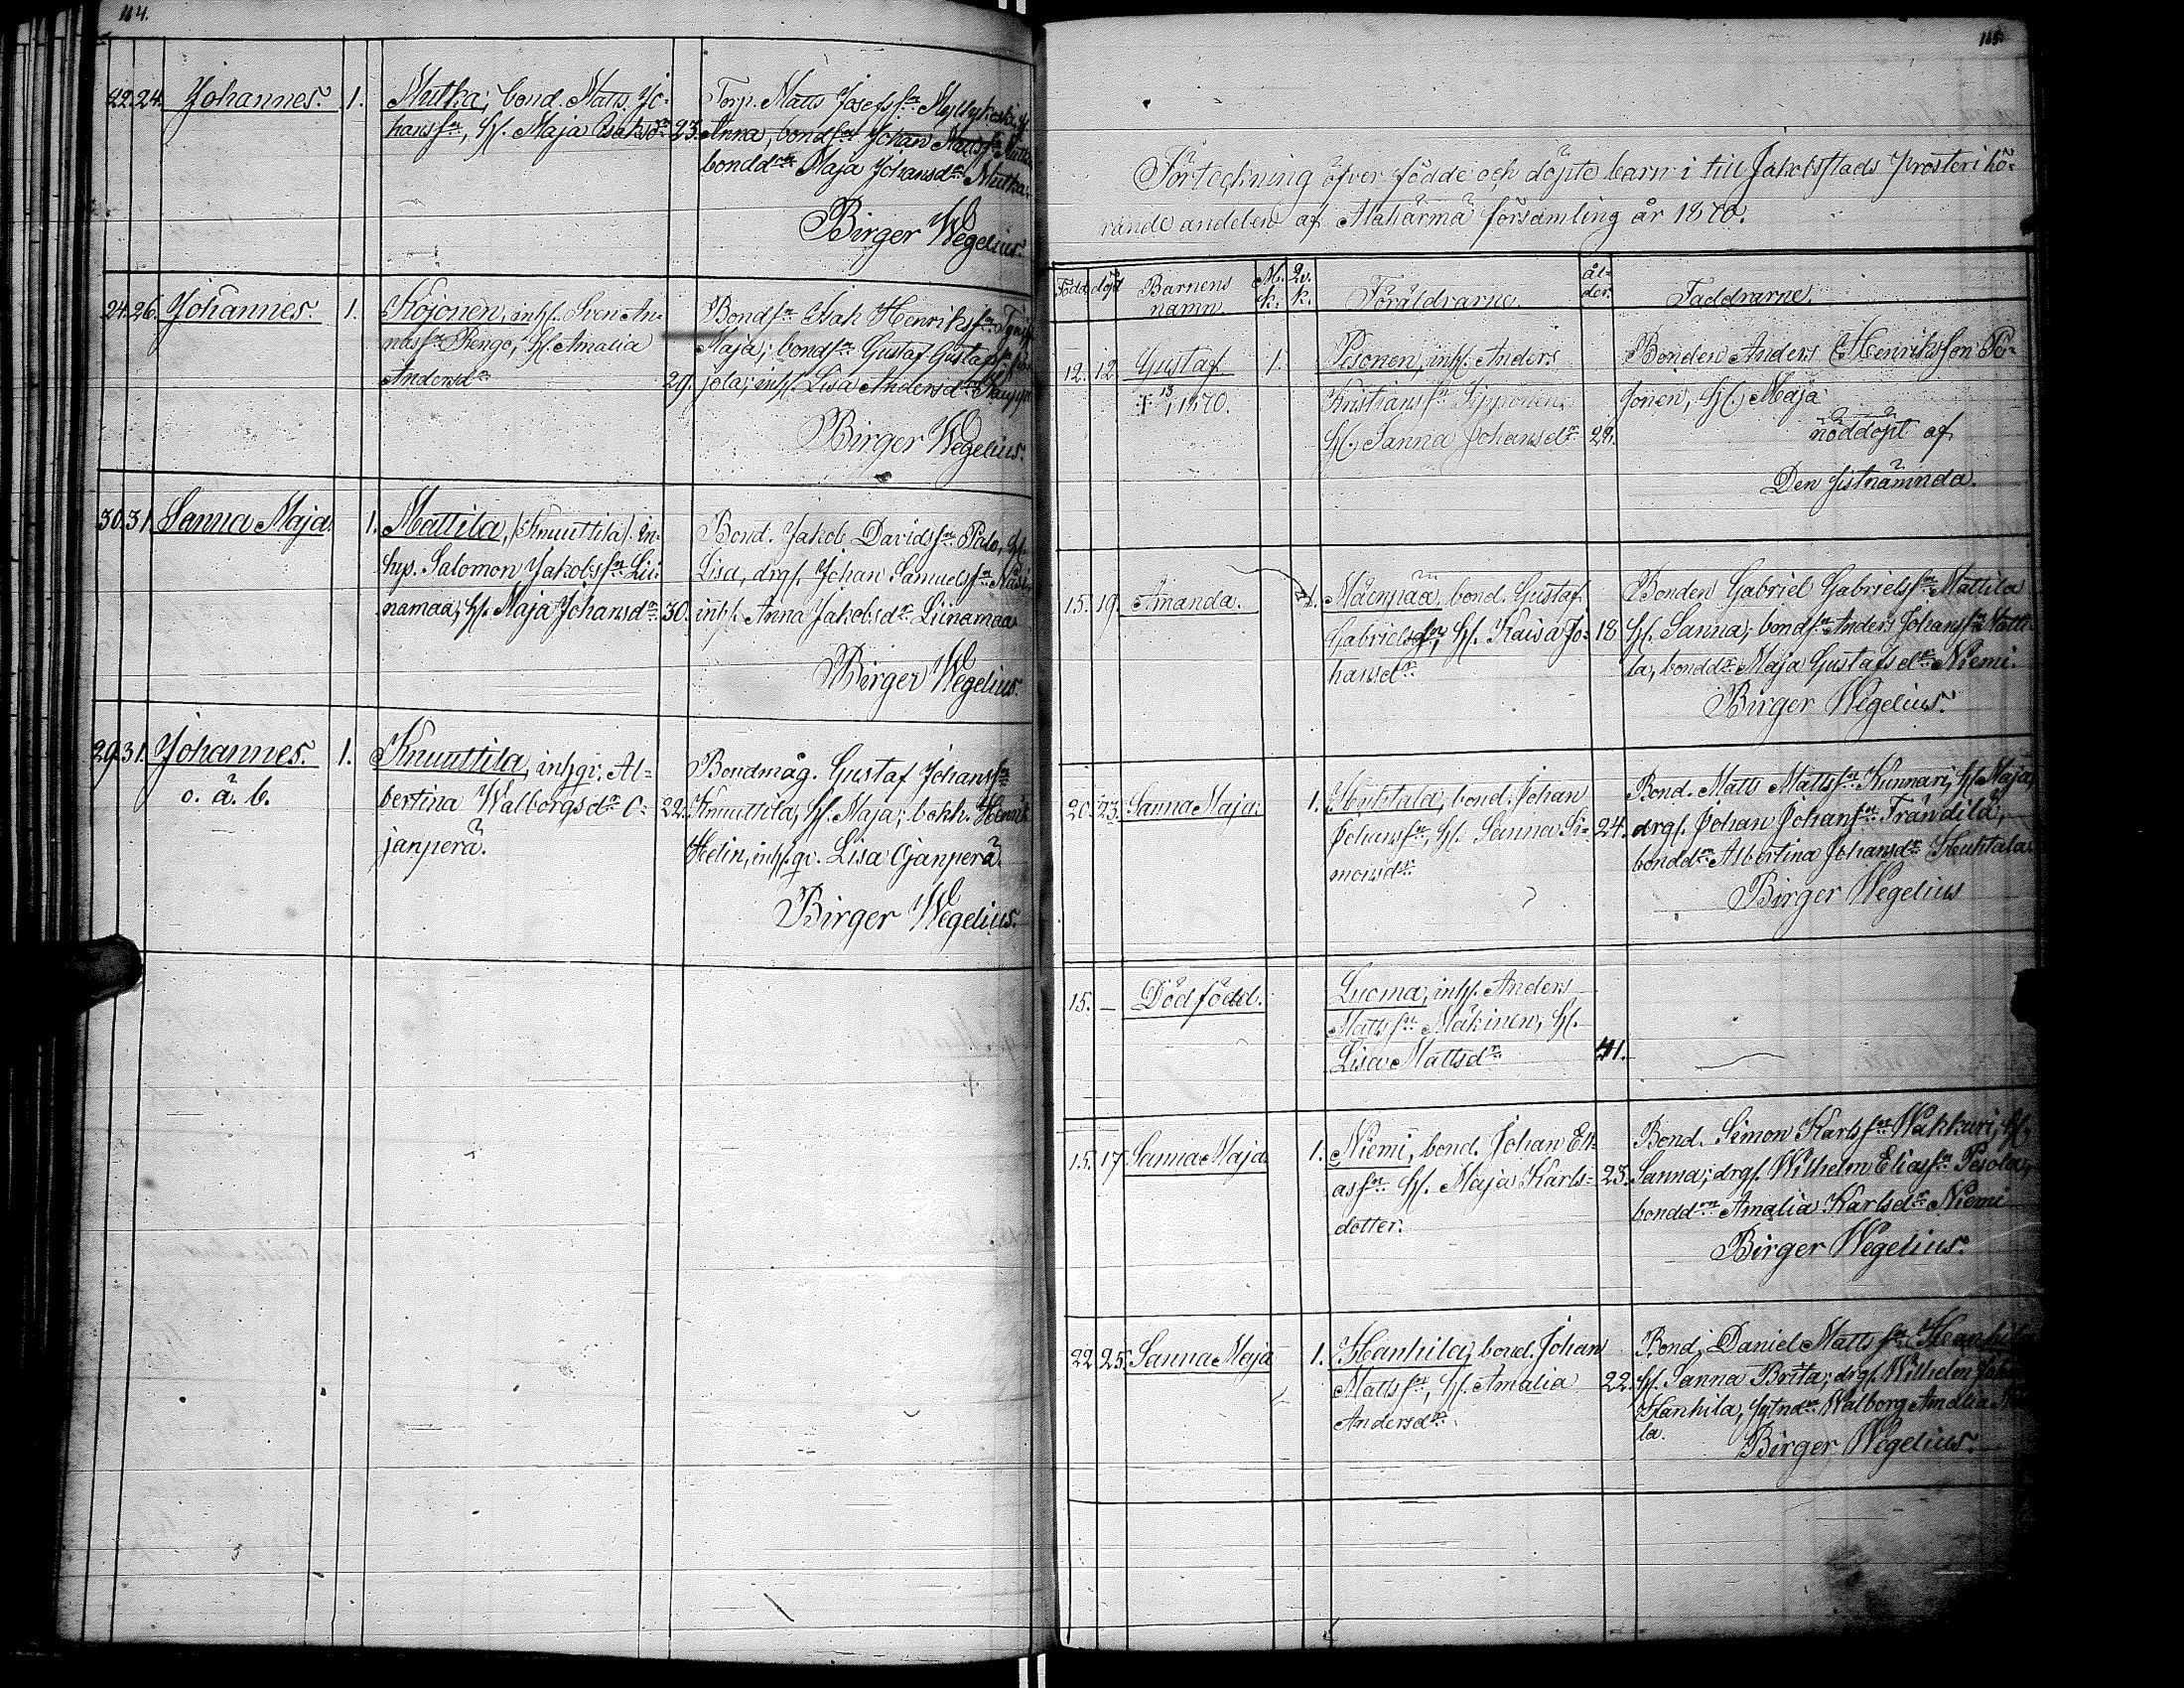 114.
22. 24. Johannes. 1. Mutka, bond. Matts Jo-
hansſn, Hſ. Maja Isaksdr 23.
Torp. Matts Josefsſn Myllykoski, Hſ.
Anna, bondſn Johan Mattsſn Mutka
bonddrn Maja Johansdr Mutka.
Birger Wegelius.
24. 26. Johannes. 1. Kojonen, inhſ. Sven An-
dersdr 29.
Bondſn Isak Henriksſn
Maja; bondſn Gustaf Gustafsſn
jola; inhſ. Lisa Andersdr
Birger Wegelius.
30. 31. Sanna Maja. 1. Mattila, /Knuuttila/. in-
hys. Salomon Jakobsſn Lii-
namaa, Hſ. Maja Johansdr 30.
Bond. Jakob Davidsſn Palo, Hſ.
Lisa, drgſ. Johan Samuelsſn Näsi,
inhſ. Anna Jakobsdr Liinamaa
Birger Wegelius.
29. 31. Johannes. 1. Knuuttila, inhqv. Al-
o. ä. b.
bertina Walborgsdr O- 22.
janperä.
Bondmåg. Gustaf Johansſn
Knuuttila, Hſ. Maja; bokh. Henrik
Helin, inhſ.qv. Lisa Ojanperä.
Birger Wegelius.
115.
Förteckning öfver födde och döpte barn i till Jakobstads prosteri hö-
rande andelen af Alahärmä församling år 1870.
Född döpt Barnens namn. M. k. Qv. k. Föräldrarne. ål-der. Faddrarne.
12. 12. Gustaf. 1. Pesonen, inhſ. Anders
+ 13/1 1870.
Kristiansſn Sipponen,
Hſ. Sanna Johansdr 29.
Bonden Anders Henriksson Po-
jonen, Hſ. Maja
nöddöpt af
Den sistnämnda.
15. 19. Amanda. 1. Mäenpää bond. Gustaf
Gabrielsſn, Hſ. Kaisa Jo- 18
hansdr
Bonden Gabriel Gabrielsſn Mattila
Hſ. Sanna; bondſn Anders Johansſn Matti-
la, bonddr Maja Gustafsdr Niemi.
Birger Wegelius.
20. 23. Sanna Maja. 1. Huhtala, bond. Johan
Johansſn, Hſ. Sanna Si- 24.
monsdr
Bond. Matts Mattsſn Kunnari, Hſ. Maja,
drgſ. Johan Johansſn Frändilä,
bonddrn Albertina Johansdr Huhtala.
Birger Wegelius
15. — Dödfödd. Luoma, inhſ. Anders
Mattsſn Mäkinen, Hſ.
Lisa Mattsdr 41.
15. 17. Sanna Maja 1. Niemi, bond. Johan Eli-
asſn Hſ. Maja Karls- 23.
dotter.
Bond. Simon Karlsſn Wakkuri, Hſ.
Sanna; drgſ. Wilhelm Eliasſn Pesola,
bonddrn Amalia Karlsdr Niemi
Birger Wegelius.
22. 25. Sanna Maja 1. Hanhila, bond. Johan
Mattsſn, Hſ. Amalia 22.
Andersdr
Bond. Daniel Mattsſn
Hſ. Sanna Brita; drgſ. Wilhelm
Hanhila, Walborg Amalia
la.
Birger Wegelius.